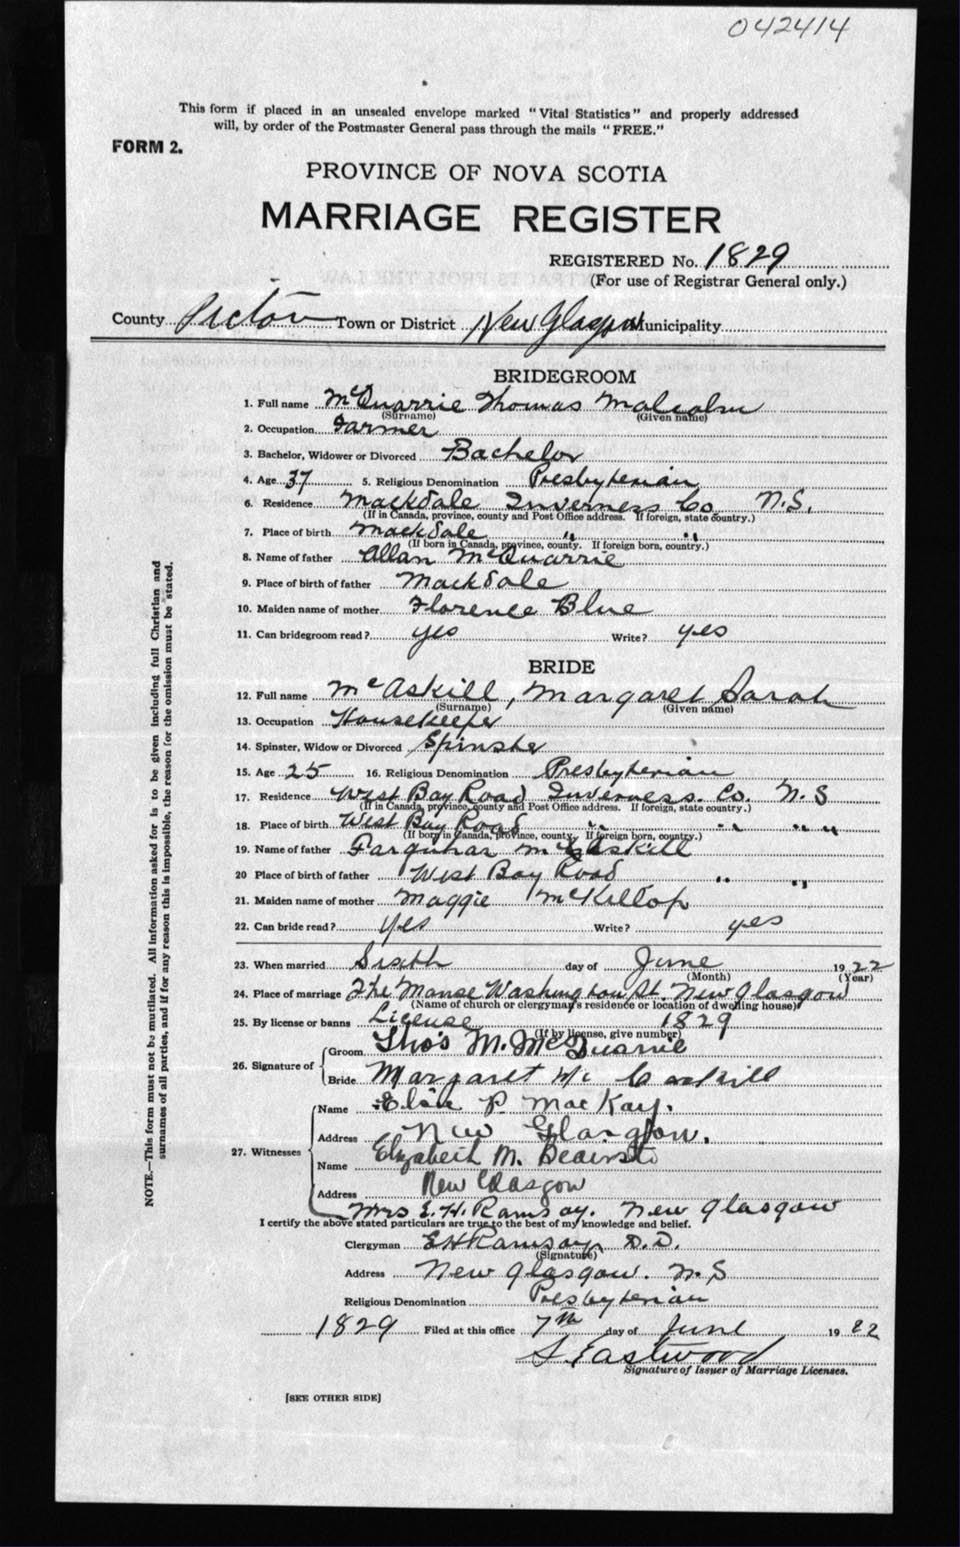 042414
This form if placed in an unsealed envelope marked "Vital Statistics" and properly addressed
will, by order of the Postmaster General pass through the mails "FREE."
FORM 2.
PROVINCE OF NOVA SCOTIA
MARRIAGE REGISTER
REGISTERED No. 1829
(For use of Registrar General only.)
County Pictou Town or District New Glasgow Municipality
BRIDEGROOM
1. Full name McQuarrie Thomas Malcolm
(Surname) (Given name)
2. Occupation Farmer
3. Bachelor, Widower or Divorced Bachelor
4. Age 37 5. Religious Denomination Presbyterian
6. Residence Mackdale Inverness Co N.S.
(If in Canada, province, county and Post Office address. If foreign, state country.)
7. Place of birth Mackdale " "
(If born in Canada, province, county. If foreign born, country.)
8. Name of father Allan McQuarrie
9. Place of birth of father Mackdale
10. Maiden name of mother Florence Blue
11. Can bridegroom read? yes Write? yes
BRIDE
12. Full name McAskill, Margaret Sarah
(Surname) (Given name)
13. Occupation Housekeeper
14. Spinster, Widow or Divorced Spinster
15. Age 25 16. Religious Denomination Presbyterian
17. Residence West Bay Road Inverness. Co. N.S
(If in Canada, province, county and Post Office address. If foreign, state country.)
18. Place of birth West Bay Road " " " "
(If born in Canada, province, county. If foreign born, country.)
19. Name of father Farquhar McAskill
20 Place of birth of father West Bay Road " "
21. Maiden name of mother Maggie McKillop
22. Can bride read? yes Write? yes
23. When married Sixth day of June 1922
(Month) (Year)
24. Place of marriage The Manse Washington St. New Glasgow
(Name of church or clergyman's residence or location of dwelling house)
25. By license or banns License 1829
(If by license, give number)
26. Signature of Groom Tho's M. McQuarrie
Bride Margaret Mc Caskill
27. Witnesses Name Elsie P. MacKay.
Address New Glasgow.
Name Elizabeth M.
Address New Glasgow
Mrs E. H. Ramsay. New Glasgow
I certify the above stated particulars are true to the best of my knowledge and belief.
Clergyman E H Ramsay D.D.
(Signature)
Address New Glasgow. N.S
Religious Denomination Presbyterian
1829 Filed at this office 7th day of June 1922
S. Eastwood
Signature of Issuer of Marriage Licenses.
[SEE OTHER SIDE]
NOTE.—This form must not be mutilated. All information asked for is to be given including full Christian and
surnames of all parties, and if for any reason this is impossible, the reason for the omission must be stated.